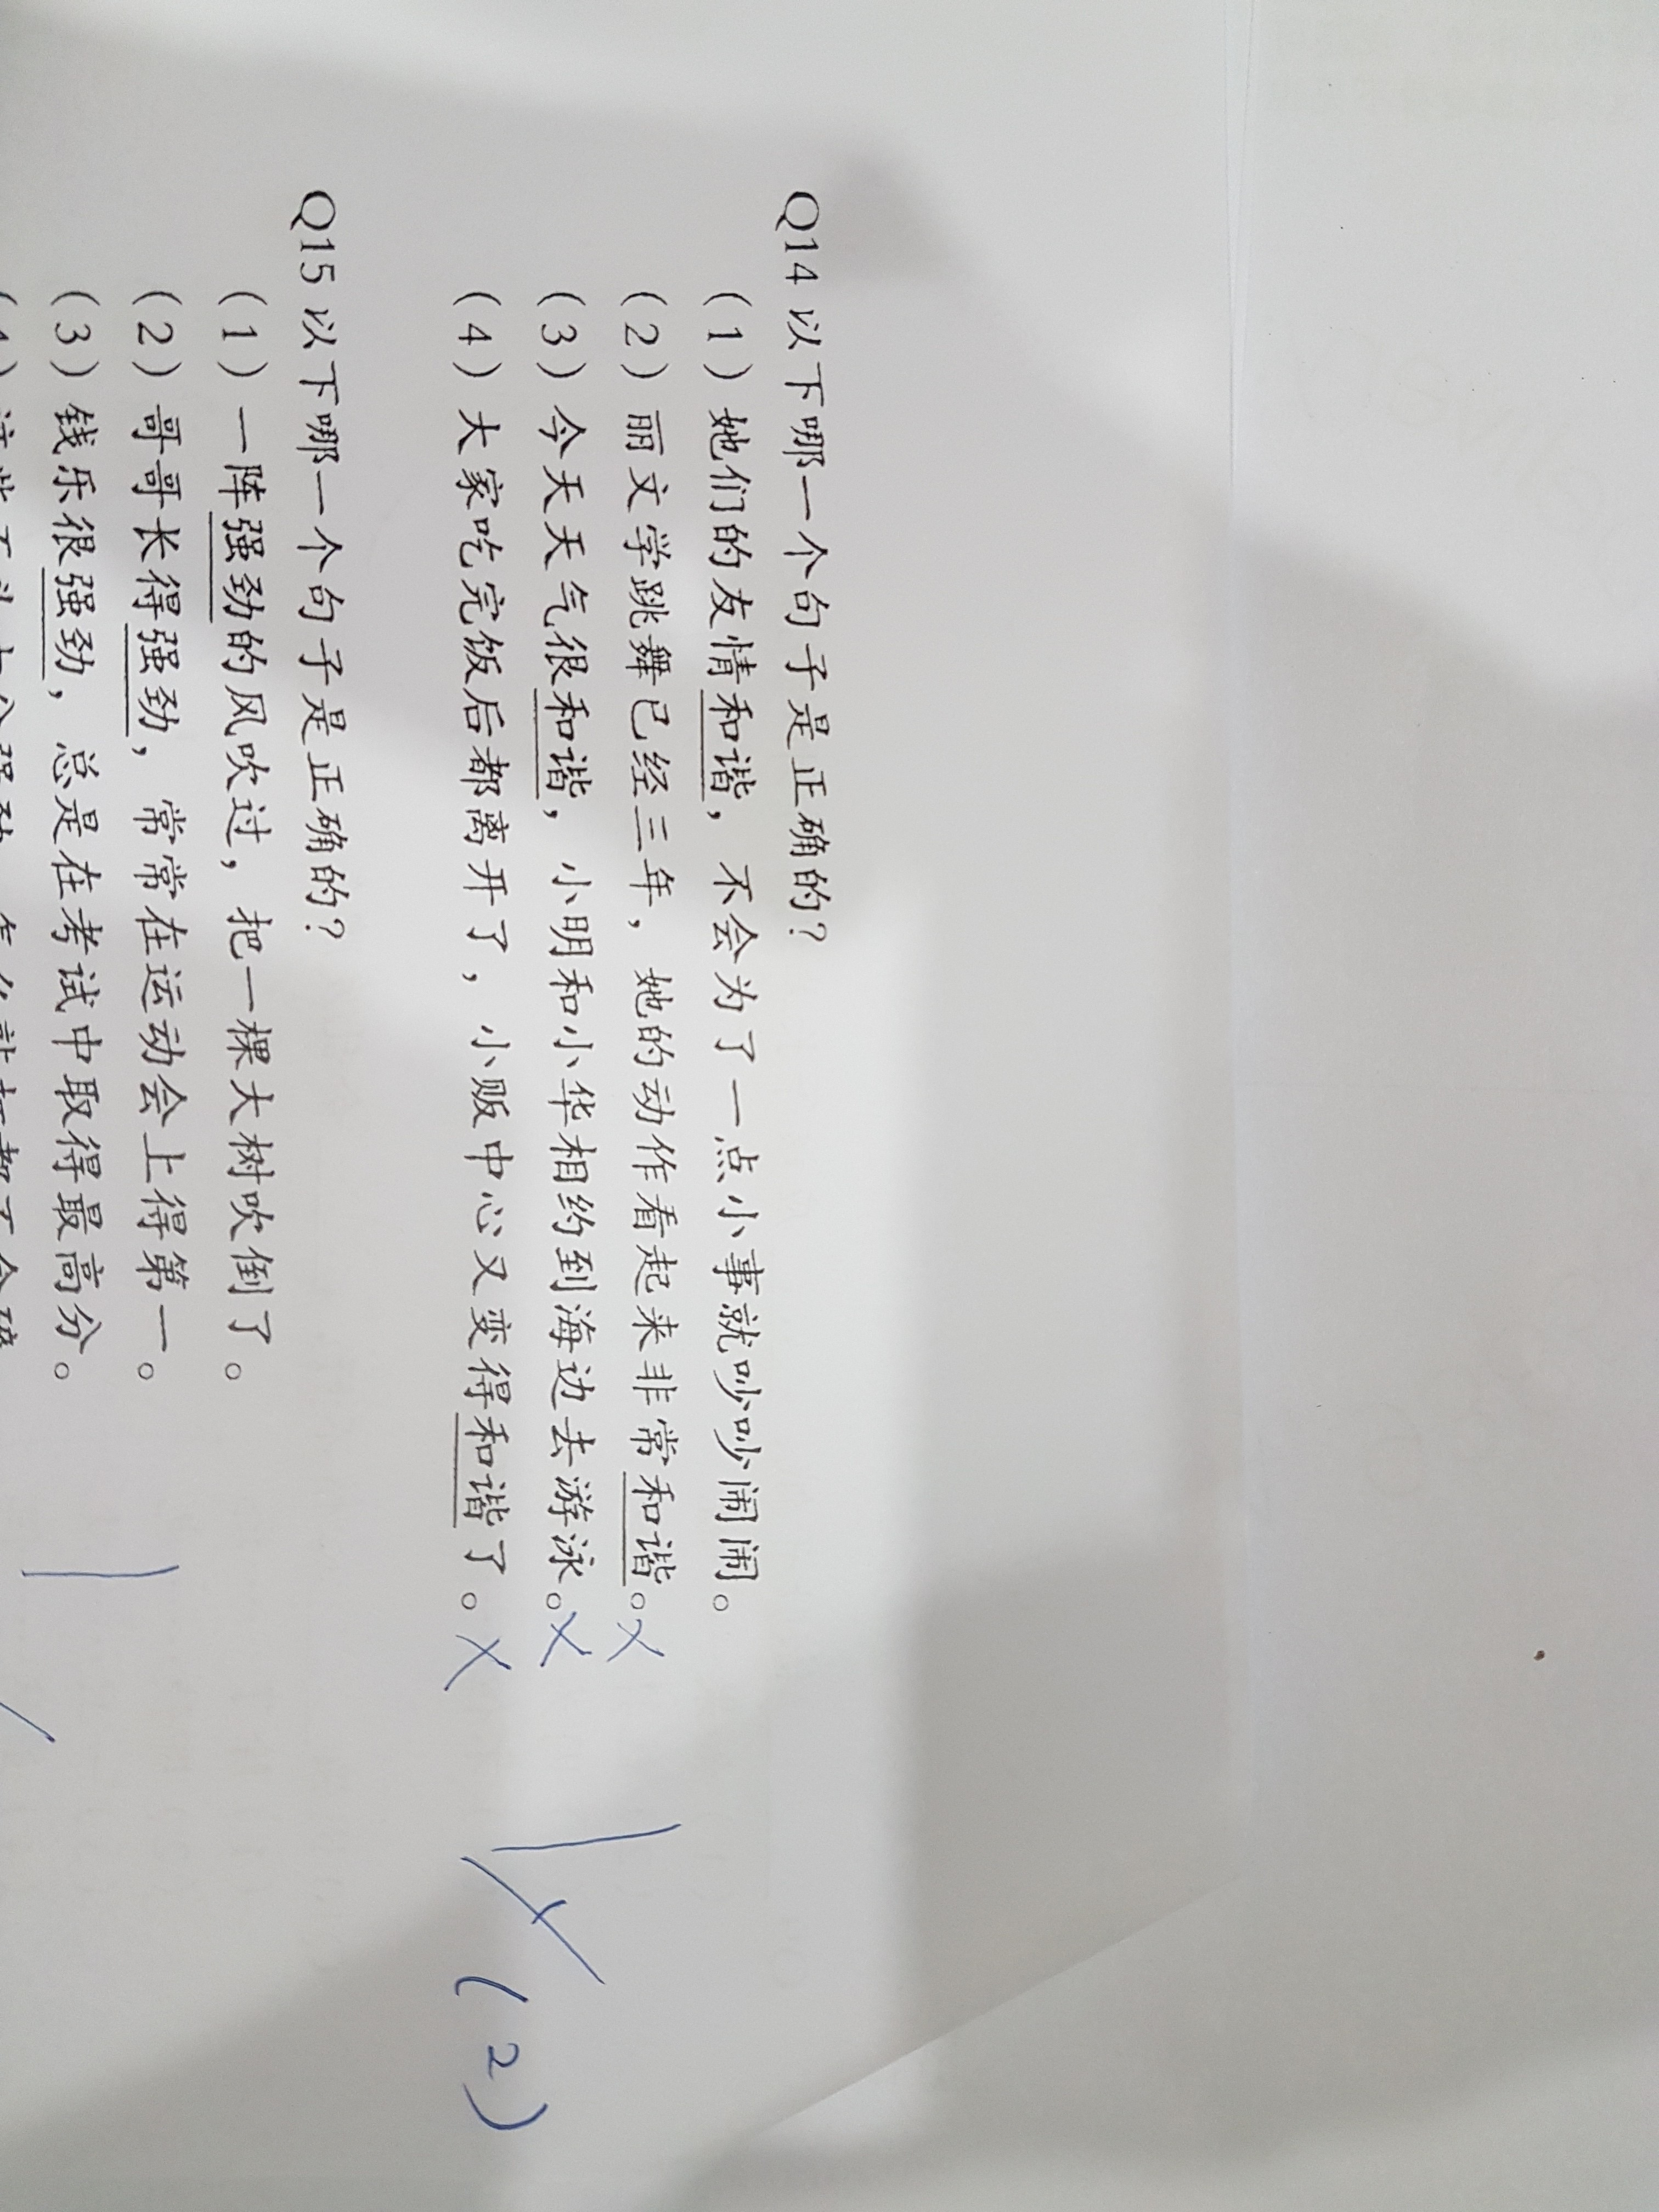 Q14 以下哪一个句子是正确的？
（1）她们的友情和谐，不会为了一点小事就吵吵闹闹。
（2）丽文学跳舞已经三年，她的动作看起来非常和谐。X
（3）今天天气很和谐，小明和小华相约到海边去游泳。X
（4）大家吃完饭后都离开了，小贩中心又变得和谐了。X
(2)
Q15 以下哪一个句子是正确的？
（1）一阵强劲的风吹过，把一棵大树吹倒了。
（2）哥哥长得强劲，常常在运动会上得第一。
（3）钱乐很强劲，总是在考试中取得最高分。